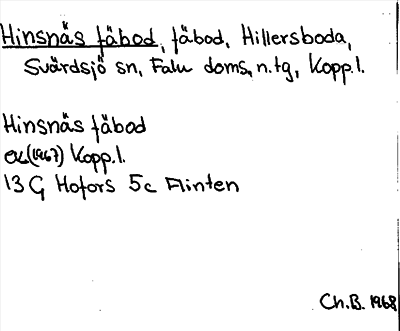 Hinsnäs fäbod, fäbod, Hillersboda,
Svärdsjö sn, Falu doms. n. tg, Kopp. l.
Hinsnäs fäbod
ek (1967) Kopp. l.
13 G Hofors 5c Flinten
Ch. B. 1968